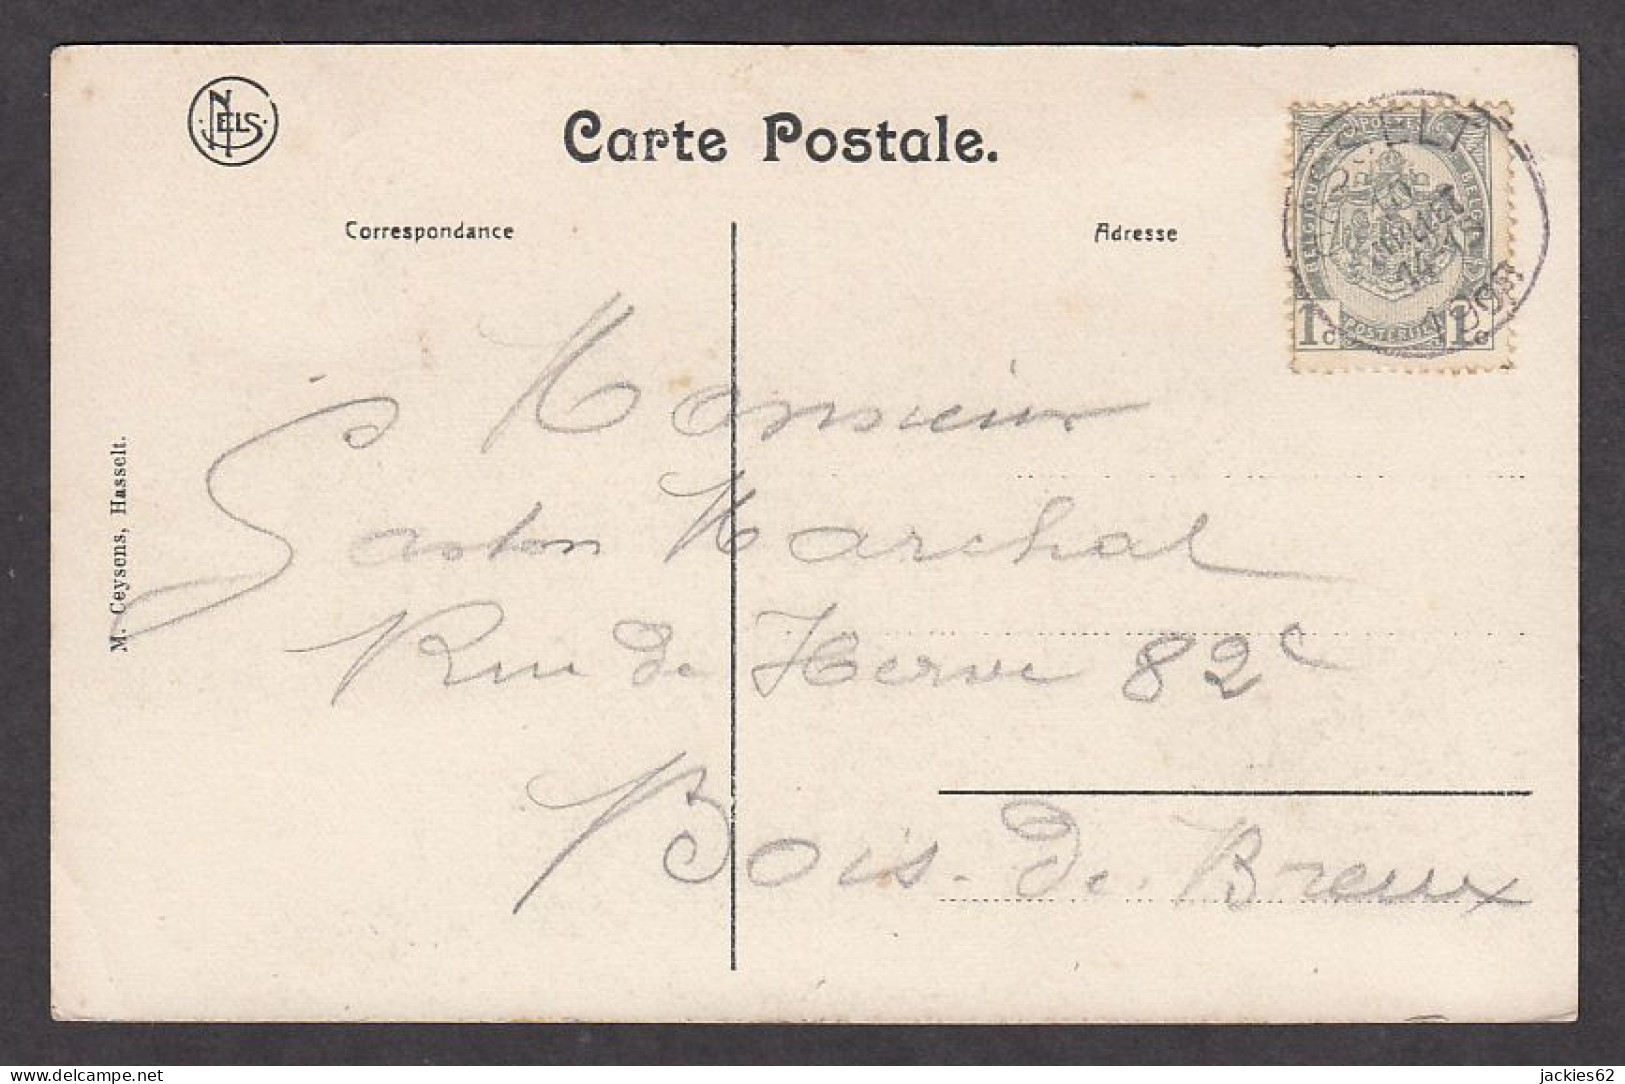 NELS
Carte Postale.
Correspondance
Adresse
POSTES
BELGIQUE
BELGIË
POSTERIJEN
1c 1c
1908
Monsieur
Gaston Marchal
Rue de Herve 82c
Bois. de. Breux
M. Ceysens, Hasselt.
delcampe.net
jackies62